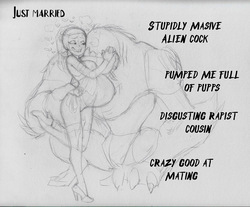 Just married
Stupidly masive
alien cock
pumped me full
of pupps
disgusting rapist
cousin
crazy good at
mating